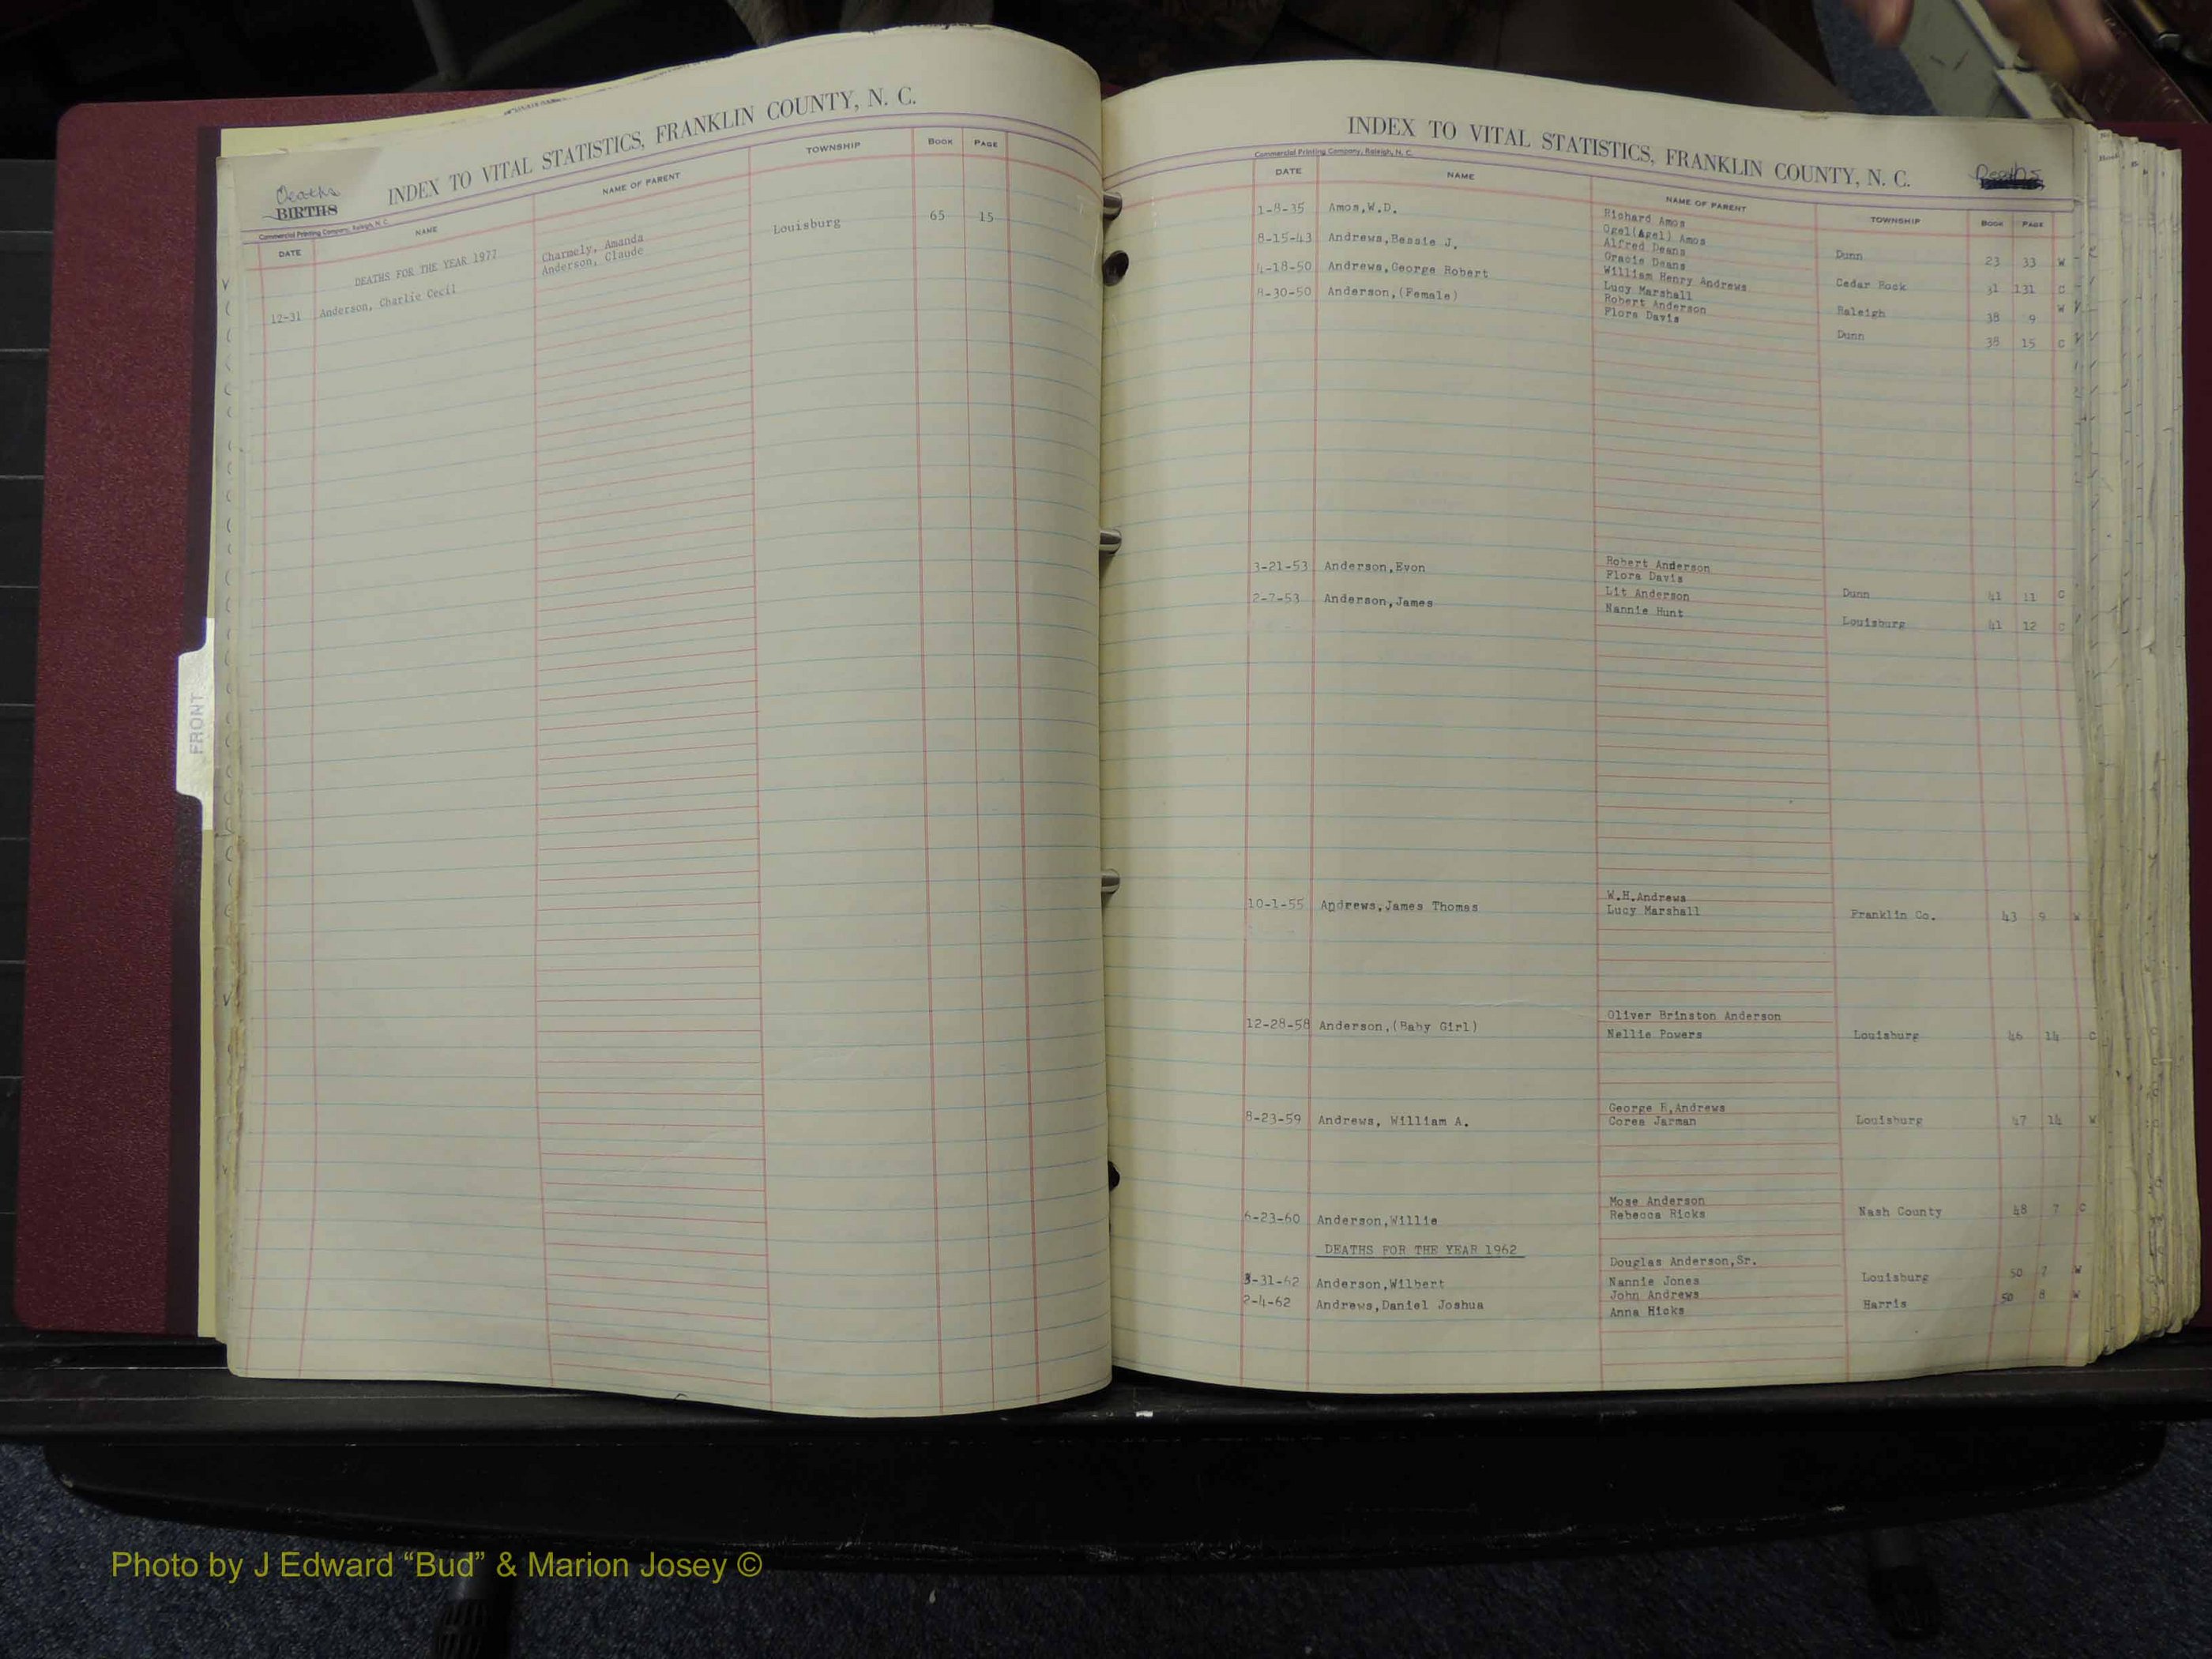 INDEX TO VITAL STATISTICS, FRANKLIN COUNTY, N. C.
Deaths
BIRTHS
Commercial Printing Company, Raleigh, N. C.
DATE NAME NAME OF PARENT TOWNSHIP BOOK PAGE
DEATHS FOR THE YEAR 1977
Charmely, Amanda
12-31 Anderson, Charlie Cecil Anderson, Claude Louisburg 65 15
FRONT
INDEX TO VITAL STATISTICS, FRANKLIN COUNTY, N. C.
Deaths
Commercial Printing Company, Raleigh, N. C.
DATE NAME NAME OF PARENT TOWNSHIP BOOK PAGE
Richard Amos
1-8-35 Amos,W.D. Ogel(Agel) Amos Dunn 23 33 W
Alfred Deans
8-15-43 Andrews,Bessie J. Gracie Deans Cedar Rock 31 131 C
William Henry Andrews
4-18-50 Andrews,George Robert Lucy Marshall Raleigh 38 9 W
Robert Anderson
8-30-50 Anderson,(Female) Flora Davis Dunn 38 15 C
Robert Anderson
3-21-53 Anderson,Evon Flora Davis Dunn 41 11 C
Lit Anderson
2-7-53 Anderson,James Nannie Hunt Louisburg 41 12 C
W.H.Andrews
10-1-55 Andrews,James Thomas Lucy Marshall Franklin Co. 43 9 W
Oliver Brinston Anderson
12-28-58 Anderson,(Baby Girl) Nellie Powers Louisburg 46 14 C
George R,Andrews
8-23-59 Andrews, William A. Corea Jarman Louisburg 47 14 W
Mose Anderson
6-23-60 Anderson,Willie Rebecca Ricks Nash County 48 7 C
DEATHS FOR THE YEAR 1962
Douglas Anderson,Sr.
3-31-62 Anderson,Wilbert Nannie Jones Louisburg 50 7 W
John Andrews
2-4-62 Andrews,Daniel Joshua Anna Hicks Harris 50 8 W
Photo by J Edward “Bud” & Marion Josey ©